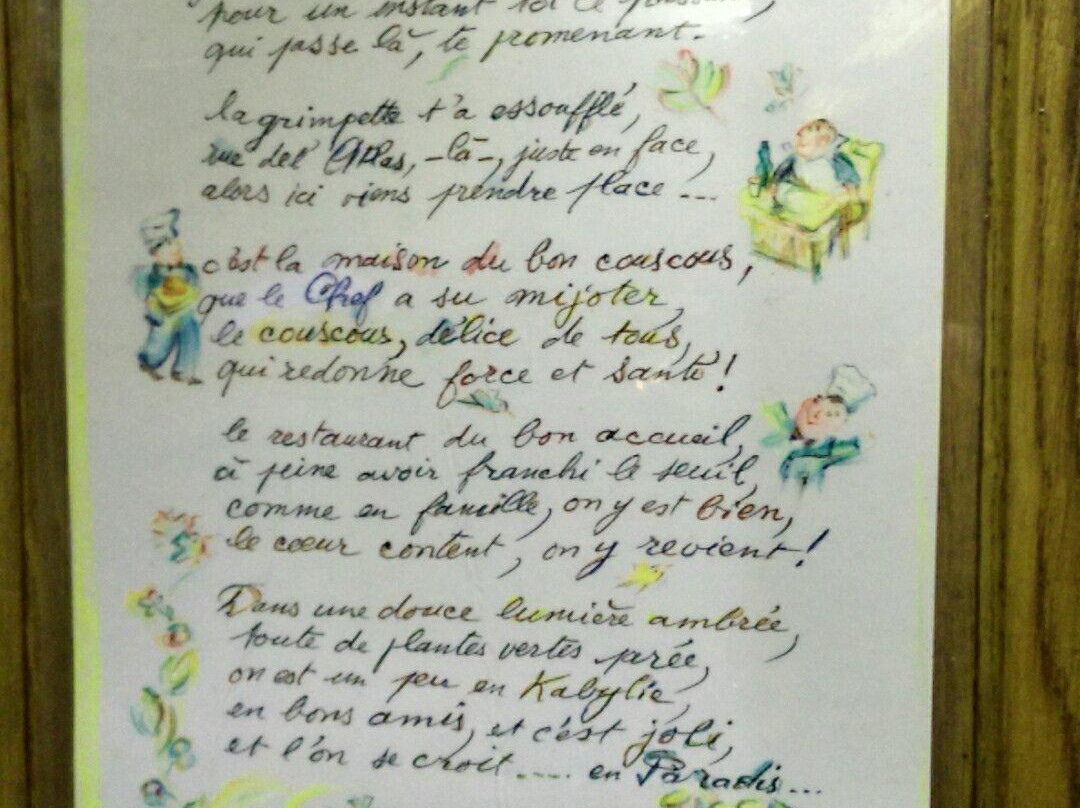 pour un instant toi le passant,
qui passe là, te promenant.
la grimpette t'a essoufflé,
rue del' Atlas, -là-, juste en face,
alors ici viens prendre place ...
c'est la maison du bon couscous,
que le Chef a su mijoter,
le couscous, délice de tous,
qui redonne force et santé!
le restaurant du bon accueil,
à peine avoir franchi le seuil,
comme en famille, on y est bien,
le cœur content, on y revient!
Dans une douce lumière ambrée,
toute de plantes vertes parée,
on est un peu en Kabylie,
en bons amis, et c'est joli,
et l'on se croit ..... en Paradis...